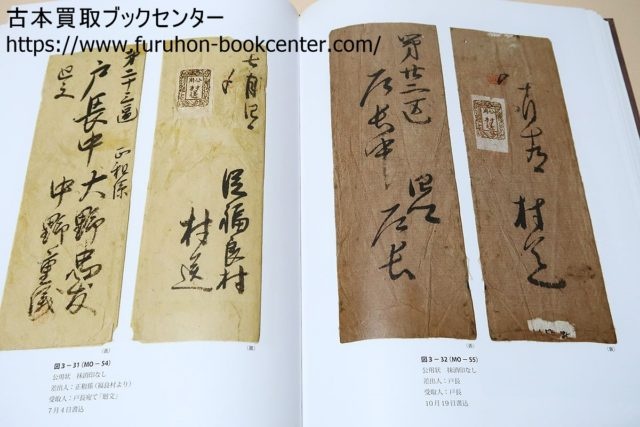 古本買取ブックセンター
https://www.furuhon-bookcenter.com/
第二十三區
正和係
廻文
戸長中
大野忠友
中野重儀
七月四日
従福良村
村送
(表)
(裏)
図3-31(MO-54)
公用状 抹消印なし
差出人:正和係(福良村より)
受取人:戸長宛て「廻文」
7月4日書込
第廿三区
戸長中
戸長
村送
(表)
(裏)
図3-32(MO-55)
公用状 抹消印なし
差出人:戸長
受取人:戸長
10月19日書込